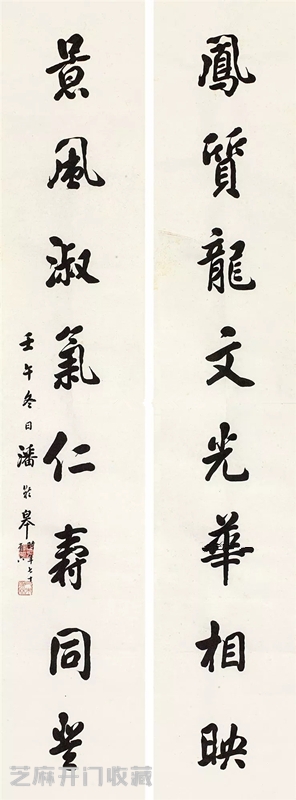 鳳質龍文光華相映
景風淑氣仁壽同登
壬午冬日潘齡皋
時年七十有六
芝麻开门收藏